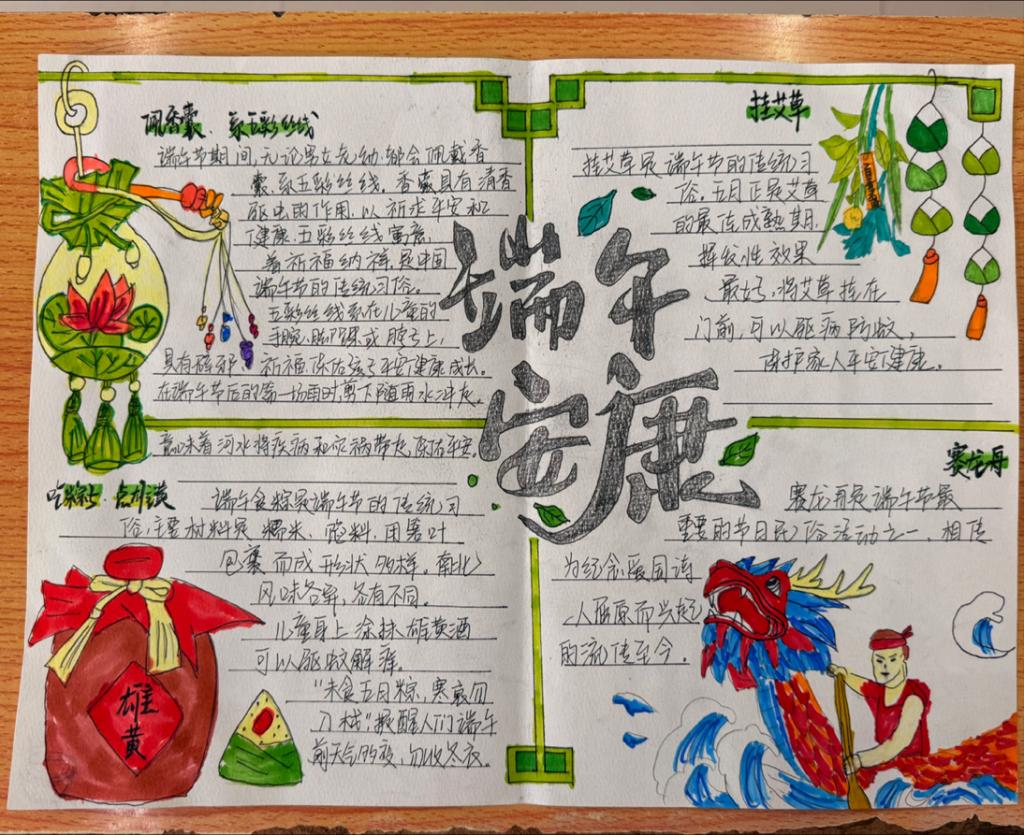 佩香囊、系五彩丝线
端午节期间,无论男女老幼,都会佩戴香
囊、系五彩丝线。香囊具有清香
驱虫的作用,以祈求平安和
健康.五彩丝线寓意
着祈福纳祥,是中国
端午节的传统习俗。
五彩丝线系在儿童的
手腕、脚踝或脖子上,
具有辟邪、祈福、保佑孩子平安健康成长。
在端午节后的第一场雨时,剪下随雨水冲走。
意味着河水将疾病和灾祸带走,保佑平安。
挂艾草
挂艾草是端午节的传统习
俗。五月正是艾草
的最佳成熟期,
挥发性效果
最好,将艾草挂在
门前,可以驱病防蚊,
守护家人平安健康。
端午
安康
吃粽子、点雄黄
端午食粽是端午节的传统习
俗,主要材料是糯米、馅料,用箬叶
包裹而成,形状多样。南北
风味各异,各有不同。
儿童身上涂抹雄黄酒
可以驱蚊解毒。
"未食五月粽,寒衣勿
入栊"提醒人们端午
前天气多变,勿收冬衣。
雄
黄
赛龙舟
赛龙舟是端午节最
重要的节日民俗活动之一,相传
为纪念爱国诗
人屈原而兴起
的流传至今.